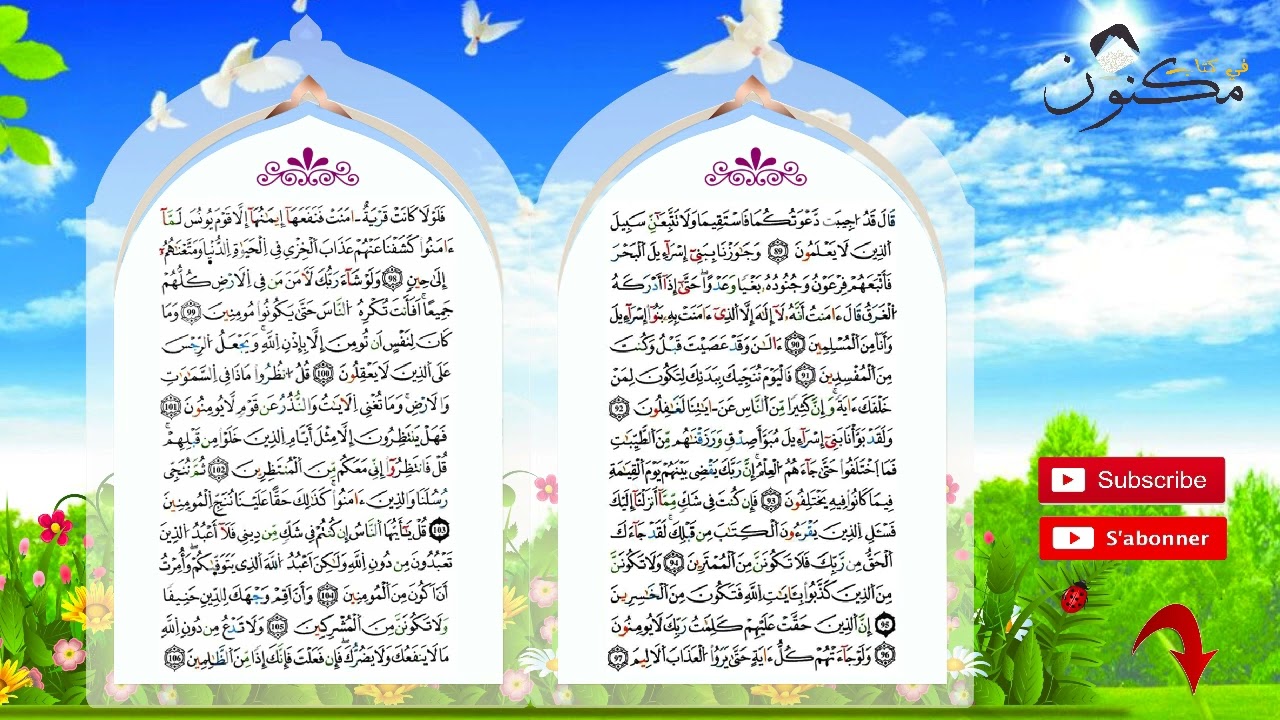 في كتاب
مكنون
قَالَ قَدُ اجِيبَت دَّعْوَتُكُمَا فَاسْتَقِيمَا وَلَا تَتَّبِعَٰنِّ سَبِيلَ
اَلذِينَ لَا يَعْلَمُونَ 89 وَجَٰوَزْنَا بِبَنِےٓ إِسْرَآءِيلَ اَلْبَحْرَ
فَأَتْبَعَهُمْ فِرْعَوْنُ وَجُنُودُهُۥ بَغْياً وَعَدْواً حَتَّىٰٓ إِذَآ أَدْرَكَهُ
اُلْغَرَقُ قَالَ ءَامَنتُ أَنَّهُۥ لَآ إِلَٰهَ إِلَّا اَلذِےٓ ءَامَنَتْ بِهِۦ بَنُوٓاْ إِسْرَآءِيلَ
وَأَنَا مِنَ اَلْمُسْلِمِينَ 90 ءَآلَٰنَ وَقَدْ عَصَيْتَ قَبْلُ وَكُنتَ
مِنَ اَلْمُفْسِدِينَ 91 فَالْيَوْمَ نُنَجِّيكَ بِبَدَنِكَ لِتَكُونَ لِمَنْ
خَلْفَكَ ءَايَةً وَإِنَّ كَثِيراً مِّنَ اَلنَّاسِ عَنَ ايَٰتِنَا لَغَٰفِلُونَ 92
وَلَقَدْ بَوَّأْنَا بَنِےٓ إِسْرَآءِيلَ مُبَوَّأَ صِدْقٍ وَرَزَقْنَٰهُم مِّنَ اَلطَّيِّبَٰتِ
فَمَا اَخْتَلَفُواْ حَتَّىٰ جَآءَهُمُ اُلْعِلْمُ إِنَّ رَبَّكَ يَقْضِے بَيْنَهُمْ يَوْمَ اَلْقِيَٰمَةِ
فِيمَا كَانُواْ فِيهِ يَخْتَلِفُونَ 93 فَإِن كُنتَ فِے شَكٍّ مِّمَّآ أَنزَلْنَآ إِلَيْكَ
فَسْـَٔلِ اِلذِينَ يَقْرَءُونَ اَلْكِتَٰبَ مِن قَبْلِكَ لَقَدْ جَآءَكَ
اَلْحَقُّ مِن رَّبِّكَ فَلَا تَكُونَنَّ مِنَ اَلْمُمْتَرِينَ 94 وَلَا تَكُونَنَّ
مِنَ اَلذِينَ كَذَّبُواْ بِـَٔايَٰتِ اِللَّهِ فَتَكُونَ مِنَ اَلْخَٰسِرِينَ
95 إِنَّ اَلذِينَ حَقَّتْ عَلَيْهِمْ كَلِمَٰتُ رَبِّكَ لَا يُومِنُونَ
96 وَلَوْ جَآءَتْهُمْ كُلُّ ءَايَةٍ حَتَّىٰ يَرَوُاْ اُلْعَذَابَ اَلَالِيمَ 97
فَلَوْلَا كَانَتْ قَرْيَةٌ اٰمَنَتْ فَنَفَعَهَآ إِيمَٰنُهَآ إِلَّا قَوْمَ يُونُسَ لَمَّآ
ءَامَنُواْ كَشَفْنَا عَنْهُمْ عَذَابَ اَلْخِزْيِ فِے اِلْحَيَوٰةِ اِلدُّنْيَا وَمَتَّعْنَٰهُمُۥٓ
إِلَىٰ حِينٍ 98 وَلَوْ شَآءَ رَبُّكَ لَأٓمَنَ مَن فِے اِلَارْضِ كُلُّهُمْ
جَمِيعاً اَفَأَنتَ تُكْرِهُ اُلنَّاسَ حَتَّىٰ يَكُونُواْ مُومِنِينَ 99 وَمَا
كَانَ لِنَفْسٍ اَن تُومِنَ إِلَّا بِإِذْنِ اِللَّهِ وَيَجْعَلُ اُلرِّجْسَ
عَلَى اَلذِينَ لَا يَعْقِلُونَ 100 قُلُ اُنظُرُواْ مَاذَا فِے اِلسَّمَٰوَٰتِ
وَالَارْضِ وَمَا تُغْنِے اِلَايَٰتُ وَالنُّذُرُ عَن قَوْمٍ لَّا يُومِنُونَ 101
فَهَلْ يَنتَظِرُونَ إِلَّا مِثْلَ أَيَّامِ اِلذِينَ خَلَوْاْ مِن قَبْلِهِمْ
قُلْ فَانتَظِرُوٓاْ إِنِّے مَعَكُم مِّنَ اَلْمُنتَظِرِينَ 102 ثُمَّ نُنَجِّے
رُسُلَنَا وَالذِينَ ءَامَنُواْ كَذَٰلِكَ حَقّاً عَلَيْنَا نُنَجِّ اِلْمُومِنِينَ
103 قُلْ يَٰٓأَيُّهَا اَلنَّاسُ إِن كُنتُمْ فِے شَكٍّ مِّن دِينِے فَلَآ أَعْبُدُ اُلذِينَ
تَعْبُدُونَ مِن دُونِ اِللَّهِ وَلَٰكِنَ اَعْبُدُ اُللَّهَ اَلذِے يَتَوَفَّىٰكُمْ وَأُمِرْتُ
أَنَ اَكُونَ مِنَ اَلْمُومِنِينَ 104 وَأَنَ اَقِمْ وَجْهَكَ لِلدِّينِ حَنِيفاً
وَلَا تَكُونَنَّ مِنَ اَلْمُشْرِكِينَ 105 وَلَا تَدْعُ مِن دُونِ اِللَّهِ
مَا لَا يَنفَعُكَ وَلَا يَضُرُّكَ فَإِن فَعَلْتَ فَإِنَّكَ إِذاً مِّنَ اَلظَّٰلِمِينَ 106
Subscribe
S'abonner